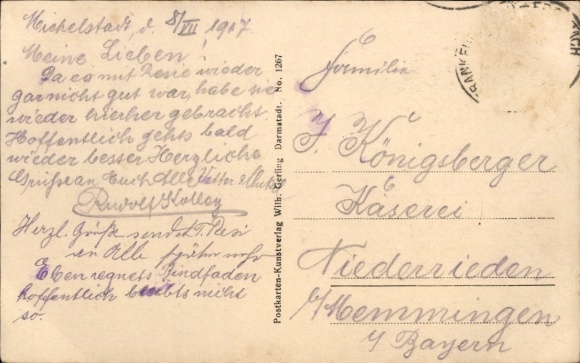 Michelstadt, d. 8/VII 1917
Meine Lieben!
Da es mit Resie wieder
gar nicht gut war, habe sie
wieder hierher gebracht
Hoffentlich gehts bald
wieder besser Herzliche
Grüsse an Euch Alle Vetter
Rudolf
Herzl. Grüße sendet T. Resi
an Alle
Eben regnets Bindfaden
hoffentlich bleibts nicht
so.
Postkarten-Kunstverlag Wilh. Gerling Darmstadt. No. 1267
Familie
J. Königsberger
Käserei
Niederrieden
b/Memmingen
i/Bayern